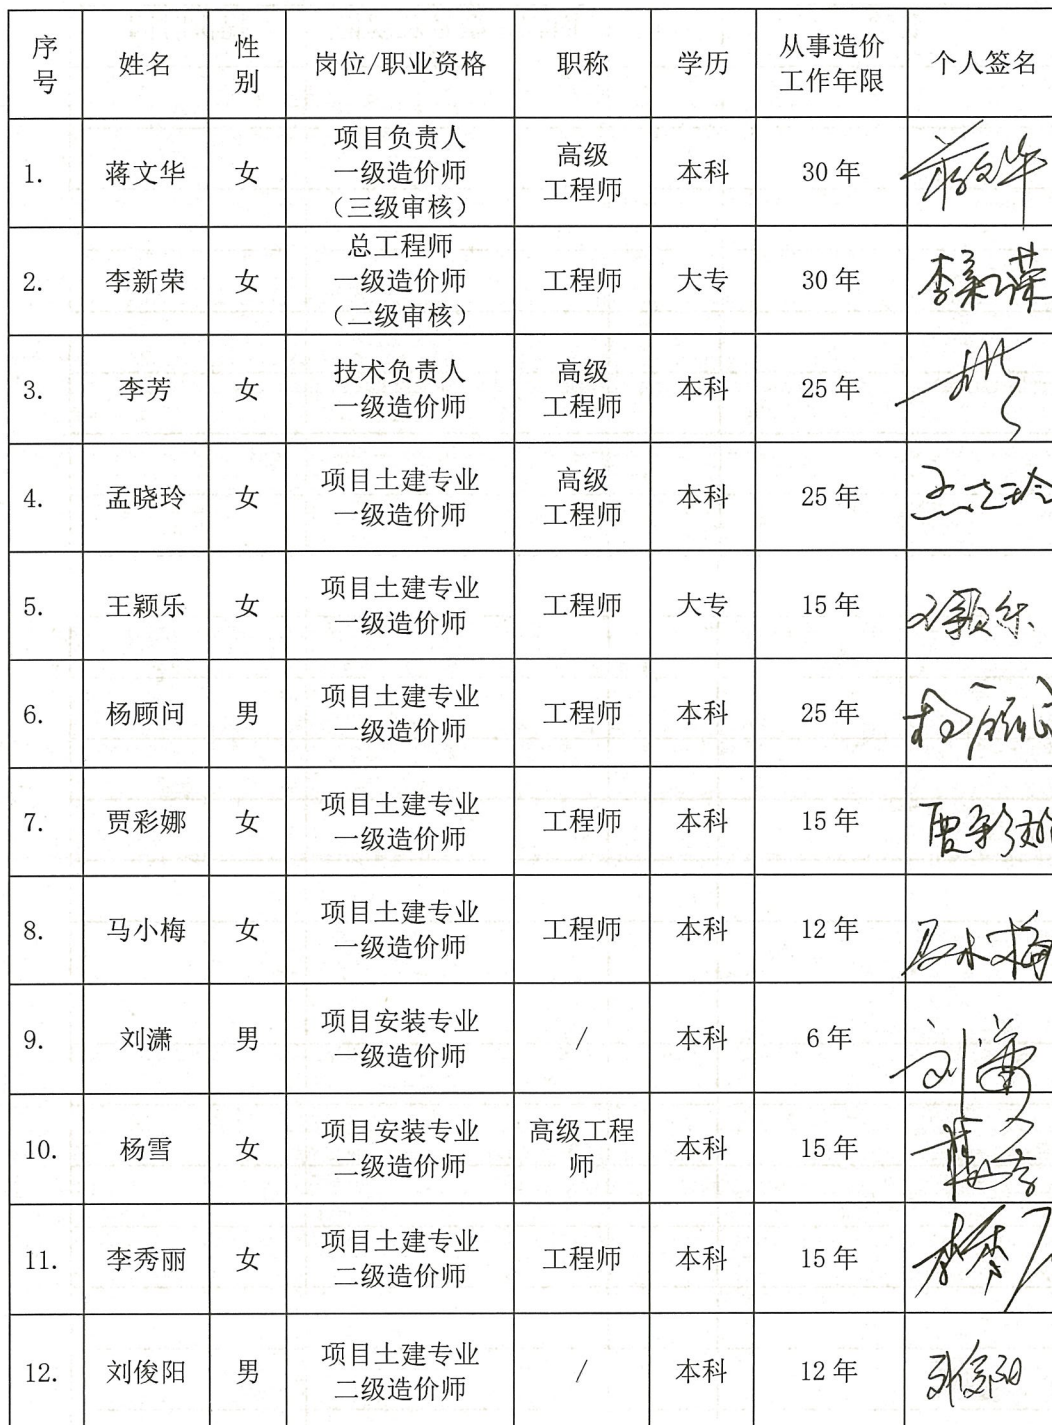 序号 姓名 性别 岗位/职业资格 职称 学历 从事造价工作年限 个人签名
1. 蒋文华 女 项目负责人 一级造价师 （三级审核） 高级工程师 本科 30 年 蒋文华
2. 李新荣 女 总工程师 一级造价师 （二级审核） 工程师 大专 30 年 李新荣
3. 李芳 女 技术负责人 一级造价师 高级工程师 本科 25 年
4. 孟晓玲 女 项目土建专业 一级造价师 高级工程师 本科 25 年 孟晓玲
5. 王颖乐 女 项目土建专业 一级造价师 工程师 大专 15 年 王颖乐
6. 杨顾问 男 项目土建专业 一级造价师 工程师 本科 25 年 杨顾问
7. 贾彩娜 女 项目土建专业 一级造价师 工程师 本科 15 年 贾彩娜
8. 马小梅 女 项目土建专业 一级造价师 工程师 本科 12 年 马小梅
9. 刘潇 男 项目安装专业 一级造价师 / 本科 6 年 刘潇
10. 杨雪 女 项目安装专业 二级造价师 高级工程师 本科 15 年 杨雪
11. 李秀丽 女 项目土建专业 二级造价师 工程师 本科 15 年 李秀丽
12. 刘俊阳 男 项目土建专业 二级造价师 / 本科 12 年 刘俊阳